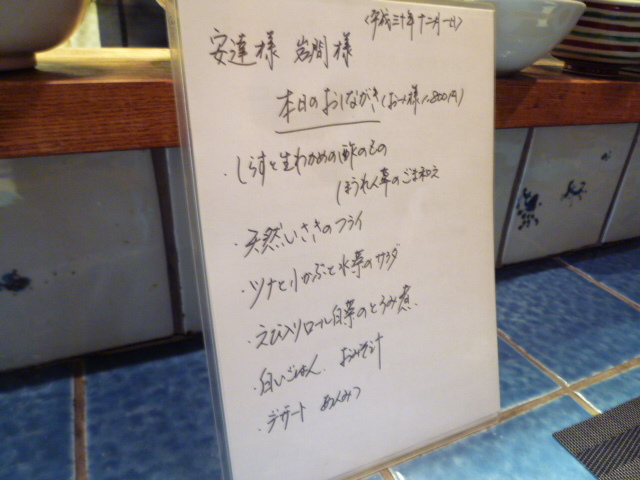 (平成三十年十二月一日)
安達様 岩間様
本日のおしながき(お一人様1,800円)
・しらすと生わかめの酢のもの
ほうれん草のごま和え
・天然いさきのフライ
・ツナと小かぶと水菜のサラダ
・えび入りロール白菜のとろみ煮
・白いごはん、おみそ汁
・デザート あんみつ